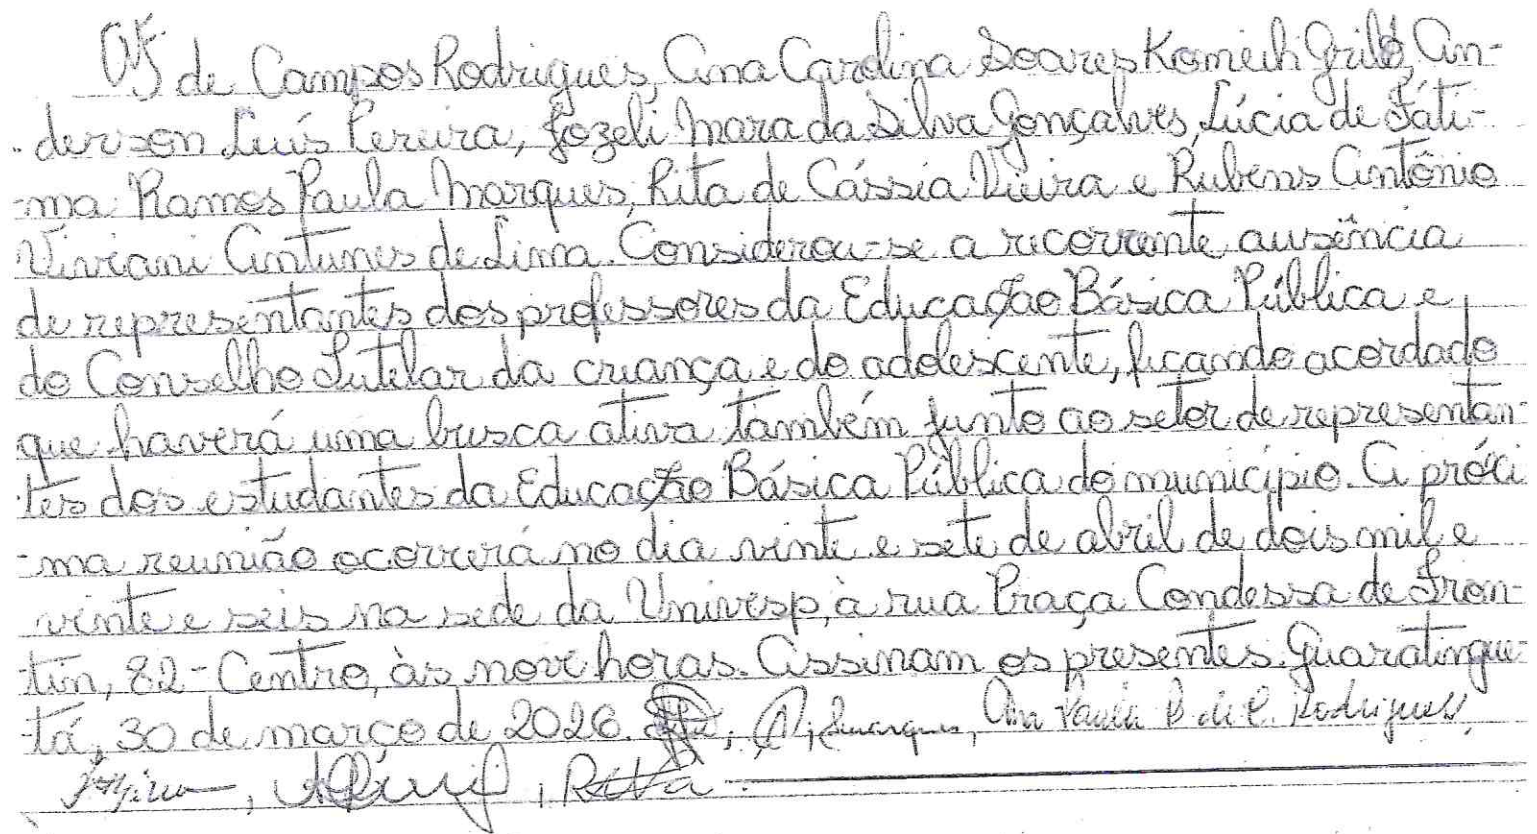 de Campos Rodrigues, Ana Carolina Soares Komeih Grilo, An-
derson Luís Pereira, Jozeli Mara da Silva Gonçalves, Lúcia de Fáti-
-ma Ramos Paula Marques, Rita de Cássia Vieira e Rubens Antônio
Viviani Antunes de Lima. Considerou-se a recorrente ausência
de representantes dos professores da Educação Básica Pública e
do Conselho Tutelar da criança e do adolescente, ficando acordado
que haverá uma busca ativa também junto ao setor de representan-
tes dos estudantes da Educação Básica Pública do município. A próxi
-ma reunião ocorrerá no dia vinte e sete de abril de dois mil e
vinte e seis na sede da Univesp, à rua Praça Condessa de Fron-
tin, 82 - Centro, às nove horas. Assinam os presentes. Guaratingue-
tá, 30 de março de 2026. Ana Paula B de C. Rodrigues,
Rita